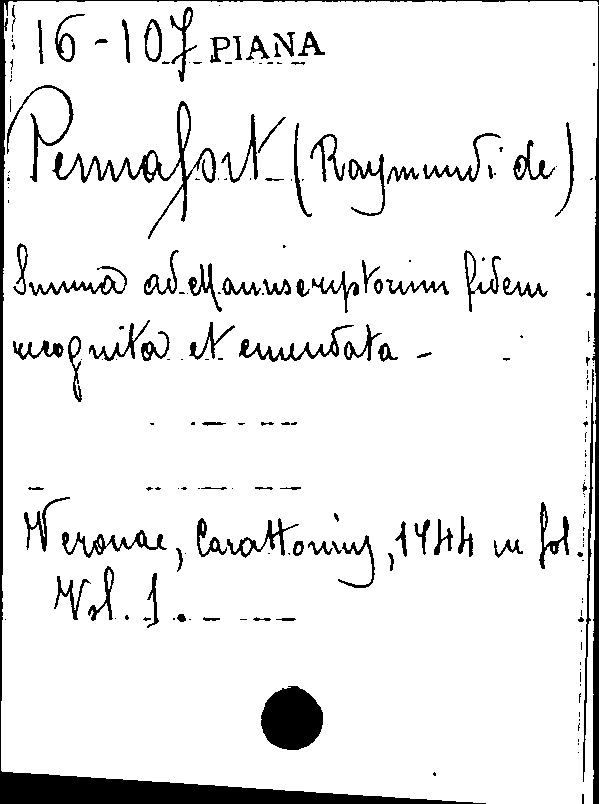 16-107 PIANA
Pennafort (Raymundi de)
Summa ad Manuscriptorum fidem
recognita et emendata -
Veronae, Carattonius, 1744 in fol.
Vol. 1.